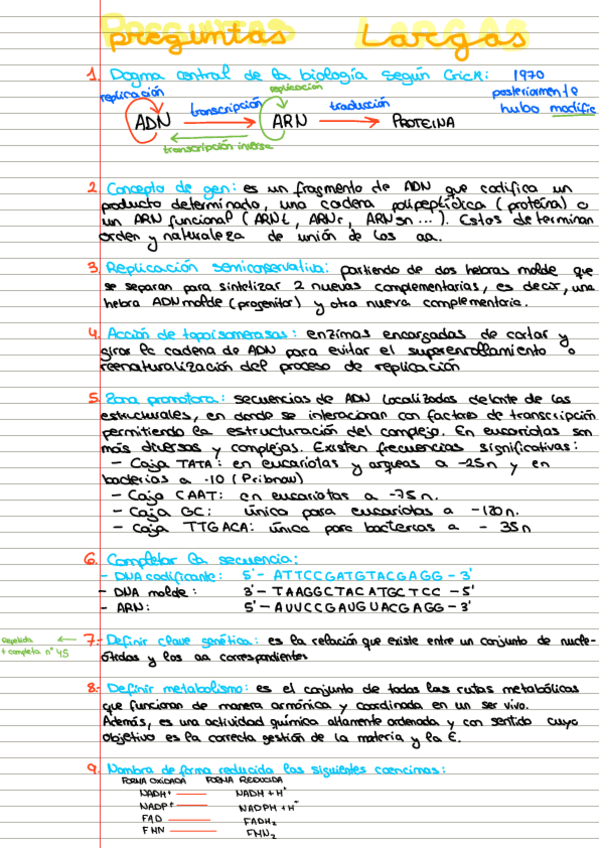 preguntas Largas
1. Dogma central de la biología según Crick: 1970
replicación replicación posteriormente
ADN transcripción ARN traducción PROTEINA hubo modific
transcripción inversa
2. Concepto de gen: es un fragmento de ADN que codifica un
producto determinado, una cadena polipeptídica (proteína) o
un ARN funcional (ARNt, ARNr, ARNsn...). Estos determinan
orden y naturaleza de unión de los aa.
3. Replicación semiconservativa: partiendo de dos hebras molde que
se separan para sintetizar 2 nuevas complementarias, es decir, una
hebra ADN molde (progenitor) y otra nueva complementaria.
4. Acción de topoisomerasas: enzimas encargadas de cortar y
girar la cadena de ADN para evitar el superenrollamiento o
reenaturalización del proceso de replicación
5. Zona promotora: secuencias de ADN localizadas delante de las
estructurales, en donde se interacionan con factores de transcripción
permitiendo la estructuración del complejo. En eucariotas son
más diversas y complejas. Existen frecuencias significativas:
- Caja TATA: en eucariotas y arqueas a -25n y en
bacterias a -10 (Pribnow)
- Caja CAAT: en eucariotas a -75n.
- Caja GC: única para eucariotas a -120n.
- Caja TTGACA: única para bacterias a - 35n
6. Completar la secuencia:
- DNA codificante: 5'- ATTCCGATGTACGAGG - 3'
- DNA molde: 3'- TAAGGCTACATGCTCC - 5'
- ARN: 5'- AUUCCGAUGUACGAGG - 3'
repetida ← 7.- Definir clave genética: es la relación que existe entre un conjunto de nucle-
+ completa nº 45 ótidos y los aa correspondientes
8.- Definir metabolismo: es el conjunto de todas las rutas metabólicas
que funcionan de manera armónica y coordinada en un ser vivo.
Además, es una actividad química altamente ordenada y con sentido cuyo
objetivo es la correcta gestión de la materia y la E.
9. Nombra de forma reducida las siguientes coenzimas:
FORMA OXIDADA FORMA REDUCIDA
NADH⁺ NADH + H⁺
NADP⁺ NADPH + H⁺
FAD FADH₂
FMN FMN₂